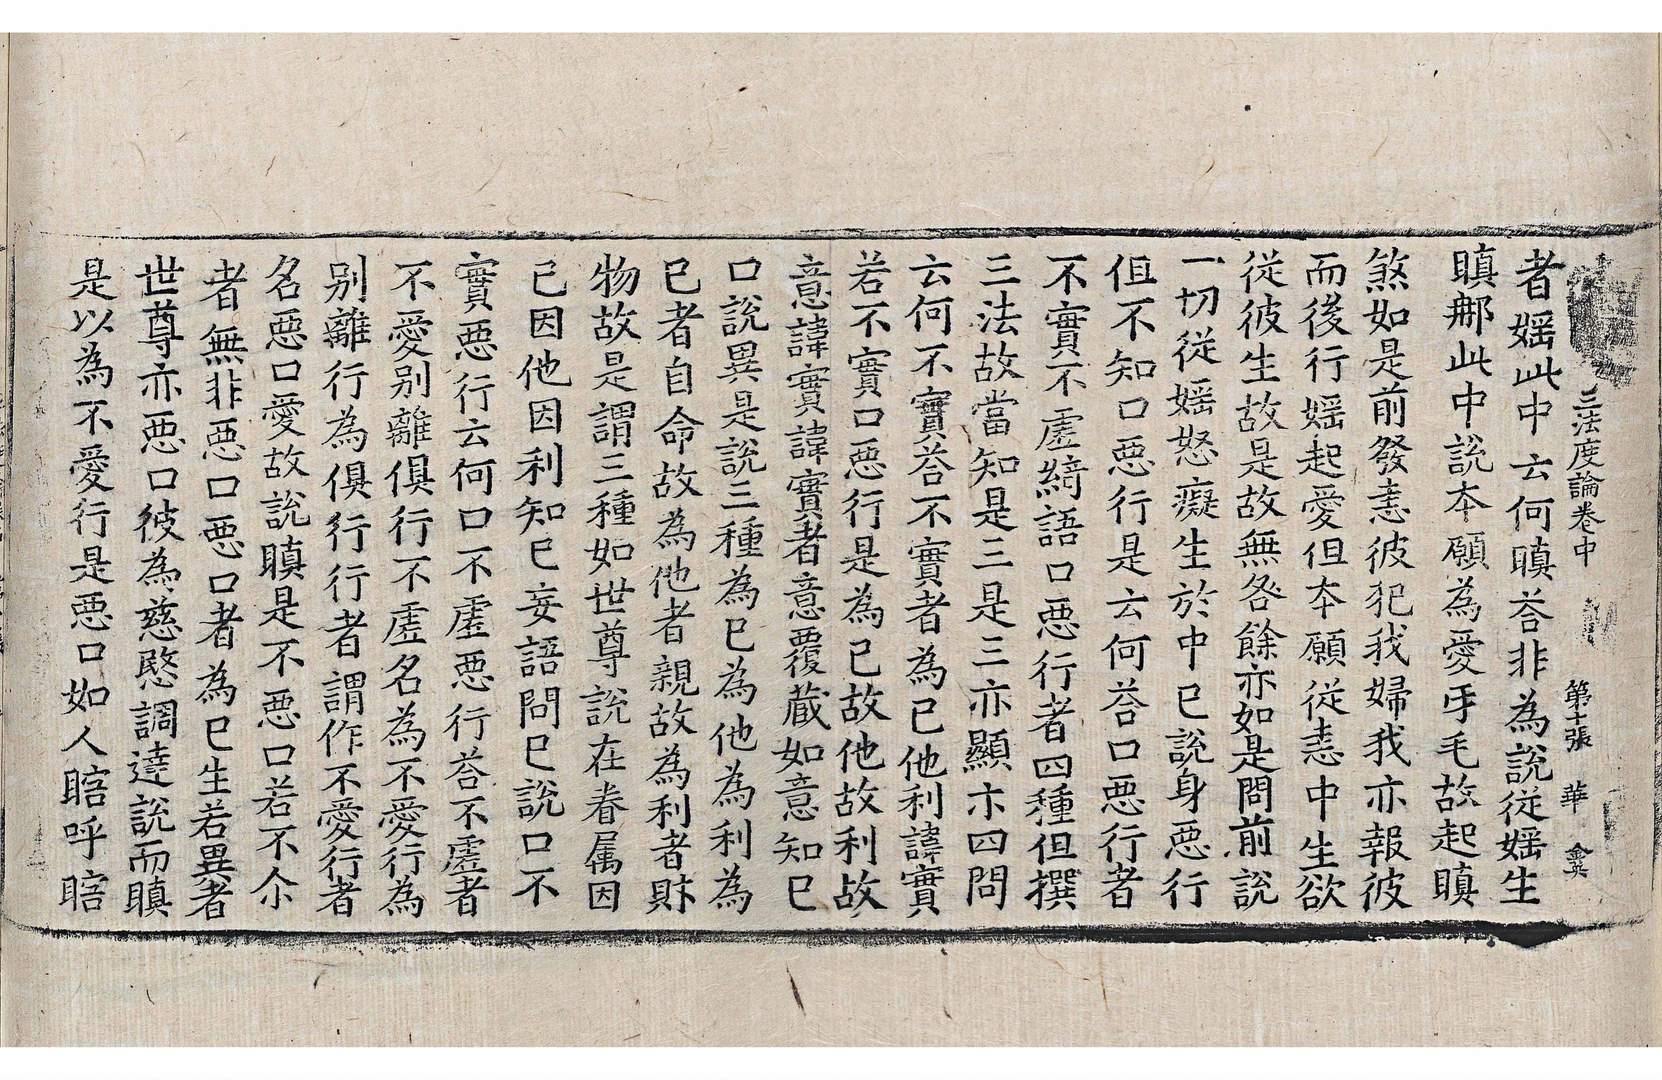 三法度論卷中 第十張 華
者婬此中云何瞋荅非為說從婬生
瞋㖠此中說本願為愛牙毛故起瞋
煞如是前發恚彼犯我婦我亦報彼
而後行婬起愛但本願從恚中生欲
從彼生故是故無咎餘亦如是問前說
一切從婬怒癡生於中已說身惡行
但不知口惡行是云何荅口惡行者
不實不虛綺語口惡行者四種但撰
三法故當知是三是三亦顯示四問
云何不實荅不實者為已他利諱實
若不實口惡行是為已故他故利故
意諱實諱實者意覆蔵如意知已
口說異是說三種為已為他為利為
已者自命故為他者親故為利者財
物故是謂三種如世尊說在眷属因
已因他因利知已妄語問已說口不
實惡行云何口不虛惡行荅不虛者
不愛別離俱行不虛名為不愛行為
別離行為俱行行者謂作不愛行者
名惡口愛故說瞋是不惡口若不尒
者無非惡口惡口者為已生若異者
世尊亦惡口彼為慈愍調達說而瞋
是以為不愛行是惡口如人瞎呼瞎